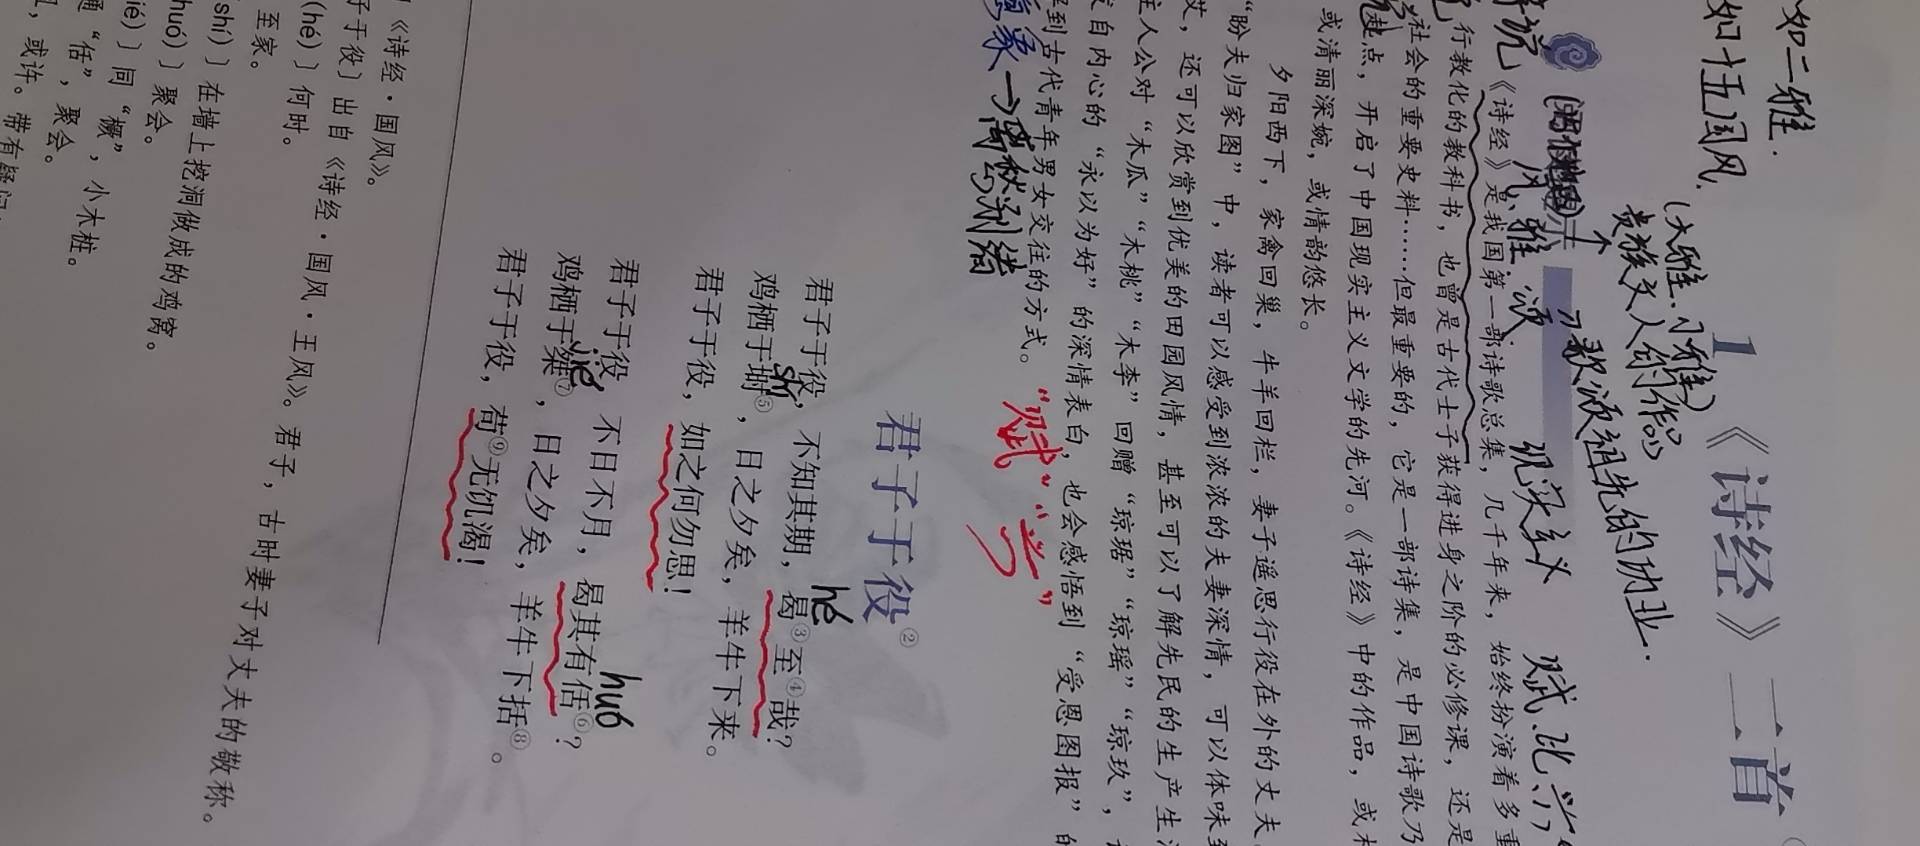 如二雅.
如十五国风.
(大雅.小雅)
贵族文人的作品
歌颂祖先的功业.
1 《诗经》二首
风、雅、颂. 现实主义 赋、比、兴
《诗经》是我国第一部诗歌总集，几千年来，始终扮演着多重
行教化的教科书，也曾是古代士子获得进身之阶的必修课，还是
社会的重要史料……但最重要的，它是一部诗集，是中国诗歌乃
起点，开启了中国现实主义文学的先河。《诗经》中的作品，或
或清丽深婉，或情韵悠长。
夕阳西下，家禽回巢，牛羊回栏，妻子遥思行役在外的丈夫。
“盼夫归家图”中，读者可以感受到浓浓的夫妻深情，可以体味到
，还可以欣赏到优美的田园风情，甚至可以了解先民的生产生
主人公对“木瓜”“木桃”“木李”回赠“琼琚”“琼瑶”“琼玖”，
发自内心的“永以为好”的深情表白，也会感悟到“受恩图报”的
到古代青年男女交往的方式。
“赋”“兴”
意象→离愁别绪
君子于役②
君子于役，不知其期，曷③至④哉？
hé
鸡栖于埘⑤，日之夕矣，羊牛下来。
shí
君子于役，如之何勿思！
君子于役，不日不月，曷其有佸⑥？
huó
鸡栖于桀⑦，日之夕矣，羊牛下括⑧。
jié
君子于役，苟⑨无饥渴！
《诗经·国风》。
子于役〕出自《诗经·国风·王风》。君子，古时妻子对丈夫的敬称。
(hé)〕何时。
至家。
shí)〕在墙上挖洞做成的鸡窝。
huó)〕聚会。
ié)〕同“橛”，小木桩。
通“佸”，聚会。
，或许。带有疑问